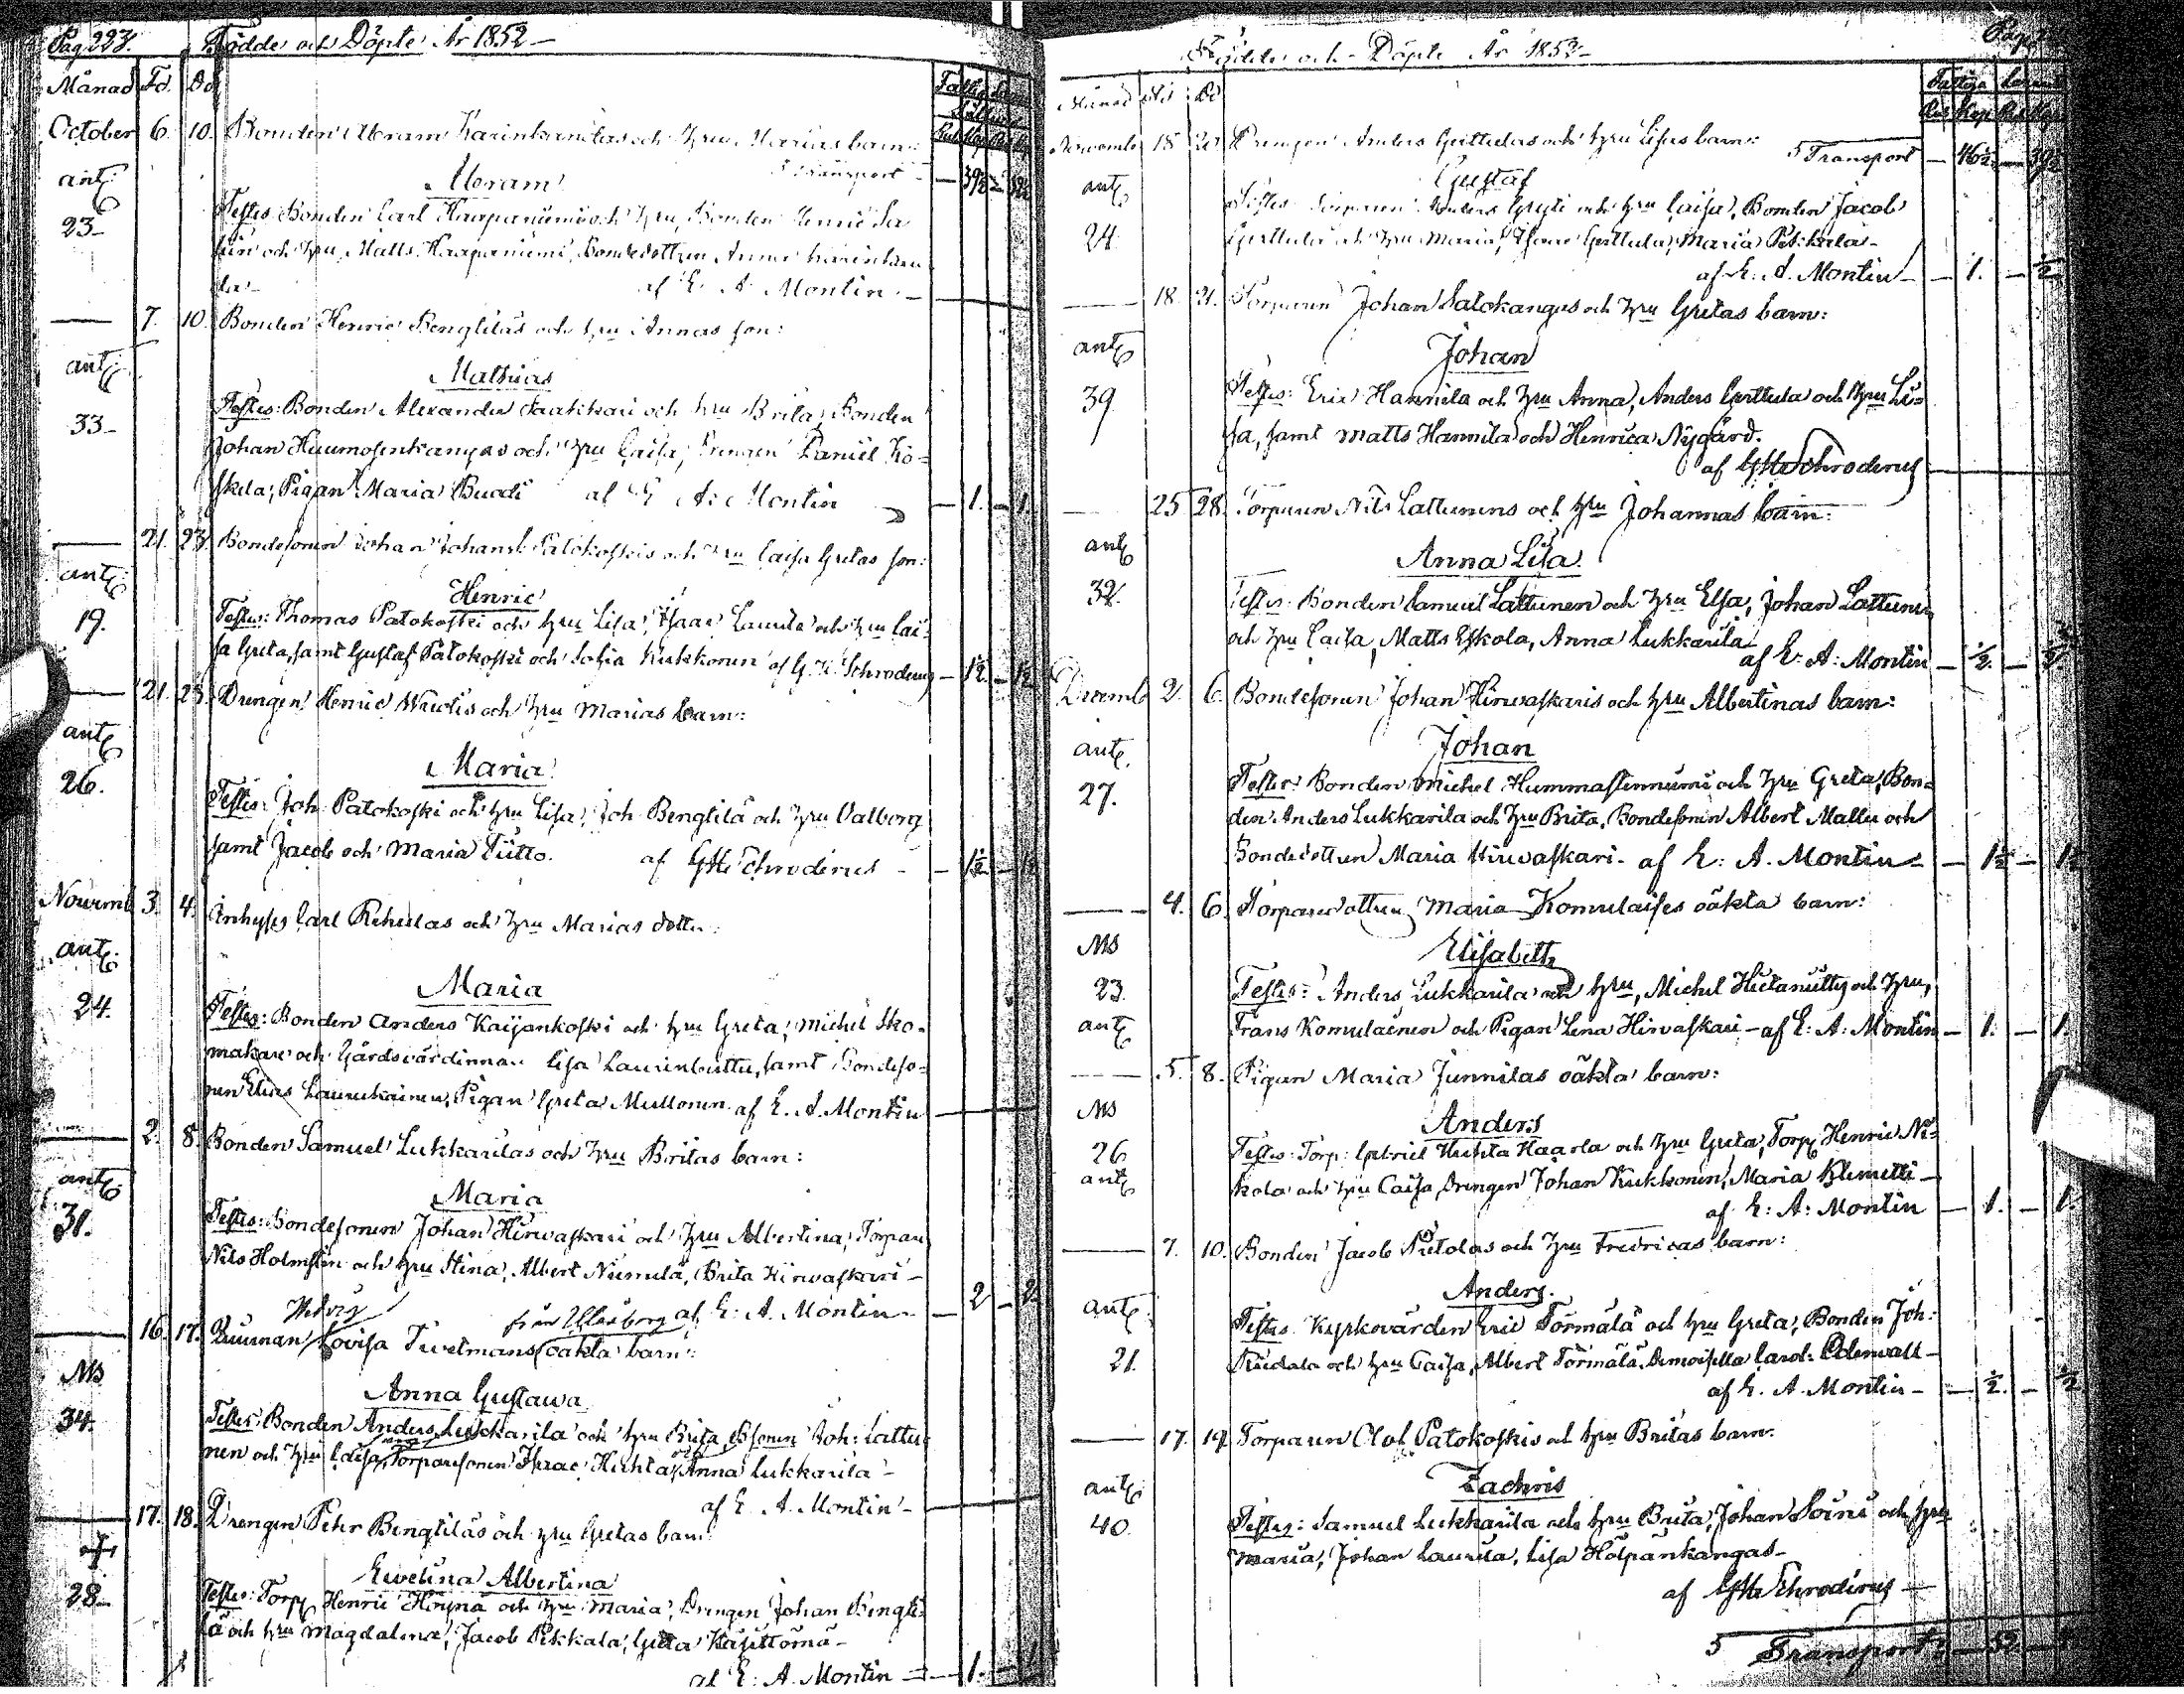 Pag 223. Födde och Döpte År 1852 -
Månad Fö. Dö
October 6. 10. Bonden Abram Karinkantas och hru Marias barn:
Transport - 39½ - 39½
ant. Abram
Testes: Bonden Carl Haapaniemi och hru, Bonden Henric
23- och hru, Matts Haapaniemi, Bondedottren Anna Karinkan
ta - af E. A. Montin -
— 7. 10. Bonden Henric Bengtiläs och hru Annas son:
ant. Mathias
Testes: Bonden Alexander Jaakkari och hru Brita, Bonden
33- Johan Huumosenkangas och hru Caisa, Drengen Daniel Ko=
skela, Pigan Maria Buadi af E A: Montin - 1. - 1.
— 21. 23. Bondesonen Johan Johanss. Patokoskis och hru Caisa Gretas son:
ant. Henric
19. Testes: Thomas Patokoski och hru Lisa, Isaac Laurila och hru Cai=
sa Greta, samt Gustaf Patokoski och Sofia Kukkonen af G. H. Schroderus - 1½ - 1½
— 21. 23. Drengen Henric och hru Marias barn:
ant. Maria
26. Testes: Joh. Patokoski och hru Lisa, Joh Bengtilä och hru Valborg
samt Jacob och Maria Tiitto. af GH Schroderus - 1½ - 1½
Novemb 3. 4. Inhyses Carl Rehulas och hru Marias dotter:
ant. Maria
24. Testes: Bonden Anders Kaijankoski och hru Greta, Michel Sko=
makare och Gårdsvärdinnan Lisa Laurinbuttu, samt Bondeso=
nen Elias Laurukainen, Pigan Greta Mullonen af E. A. Montin
— 2. 8. Bonden Samuel Lukkarilas och hru Britas barn:
ant. Maria
31. Testes: Bondesonen Johan Hirwaskari och hru Albertina, Torparn
Nils Holmsten och hru Stina, Albert Niemelä, Brita Hirwaskari -
af E: A. Montin - - 2 - 2
Hedvig från Uleåborg
— 16. 17. Lovisa oäkta barn:
Ms Anna Gustawa
34. Testes: Bonden Anders Lukkarila och hru Brita, Bsonen Joh: Lattu=
nen och hru Caisa, Torparesonen Isaac Huhta, Anna Lukkarila -
af E. A. Montin -
— 17. 18. Drengen Pehr Bengtiläs och hru Gretas barn
Ewelina Albertina
28- Testes: Torp Henric och hru Maria, Drengen Johan Bengti=
lä och hru Magdalena, Jacob Pekkala, Greta
af E: A. Montin - 1. -
Födde och Döpte År 1852 -
Månad Dö
Novemb 18 20 Drengen Anders Gerttulas och hru Lisas barn:
5 Transport - 46½ - 39½
ant Gustaf
Testes och hru Caisa, Bonden Jacob
24. Gerttula och hru Maria, Isaac Gerttula, Maria
af E: A. Montin - - 1. - ½
— 18. 21. Torparen Johan Satokangas och hru Gretas barn:
ant Johan
39 Testes: Eric Hannila och hru Anna, Anders Gerttula och hru Li=
sa, samt Matts Hannila och Henrica Nygård.
af GH Schroderus
— 25 28. Torparen Nils Lattunens och hru Johannas barn:
ant Anna Lisa
32. Testes: Bonden Samuel Lattunen och hru Elsa, Johan Lattunen
och hru Caisa, Matts Eskola, Anna Lukkarila
af E: A: Montin - ½. - ½
Decemb 2. 6. Bondesonen Johan Hirwaskaris och hru Albertinas barn:
ant. Johan
27. Testes: Bonden Michel Hummastenniemi och hru Greta, Bon=
den Anders Lukkarila och hru Brita, Bondesonen Albert Mallu och
Bondedottren Maria Hirwaskari - af E: A. Montin - - 1½ - 1½
— 4. 6. Torparedottren Maria Komulaises oäkta barn:
Ms Elisabeth
23. Testes: Anders Lukkarila och hru, Michel Hietanutty och hru,
ant Frans Komulainen och Pigan Lena Hirvaskari - af E: A: Montin - 1. - 1.
— 5. 8. Pigan Maria Junnilas oäkta barn:
Ms Anders
26 Testes: Torp: Gabriel Huhta Haarla och hru Greta, Torp Henric Ni=
ant kola och hru Caisa, Drengen Johan Kukkonen, Maria Klemetti -
af E: A: Montin - 1. - 1.
— 7. 10. Bonden Jacob Pietolas och hru Fredricas barn:
ant. Anders.
Testes Kyrkovärden Eric Törmälä och hru Greta, Bonden Joh:
21. och hru Caisa, Albert Törmälä, Demoisella Carol: Ederwall -
af E. A. Montin - - ½. - ½
— 17. 19 Torparen Olof Patokoskis och hru Britas barn.
ant. Zachris
40. Testes: Samuel Lukkarila och hru Brita, Johan Soini och hru
Maria, Johan Laurila, Lisa Hölpänkangas -
af GH Schroderus -
5 Transport - 52 -